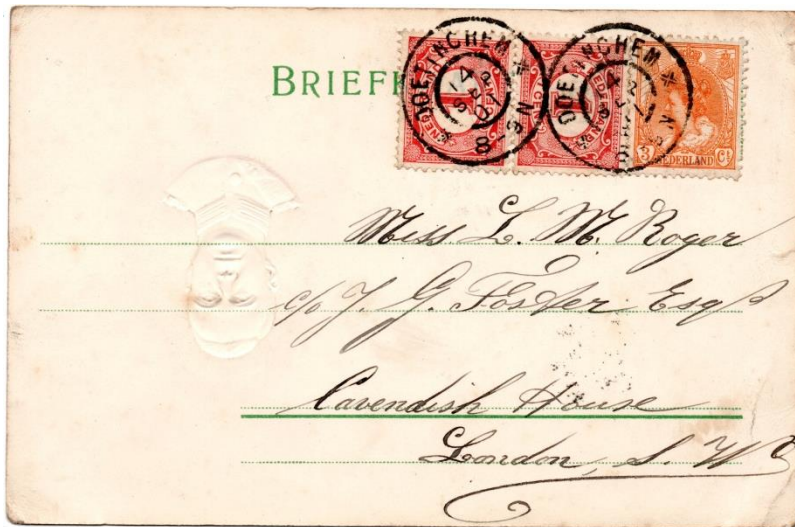 DOETINCHEM
DOETINCHEM
1
1
3 Ct
NEDERLAND
Miss. L. M. Roger
c/o J. G. Foster Esqʳ
Cavendish House
London, S. W.